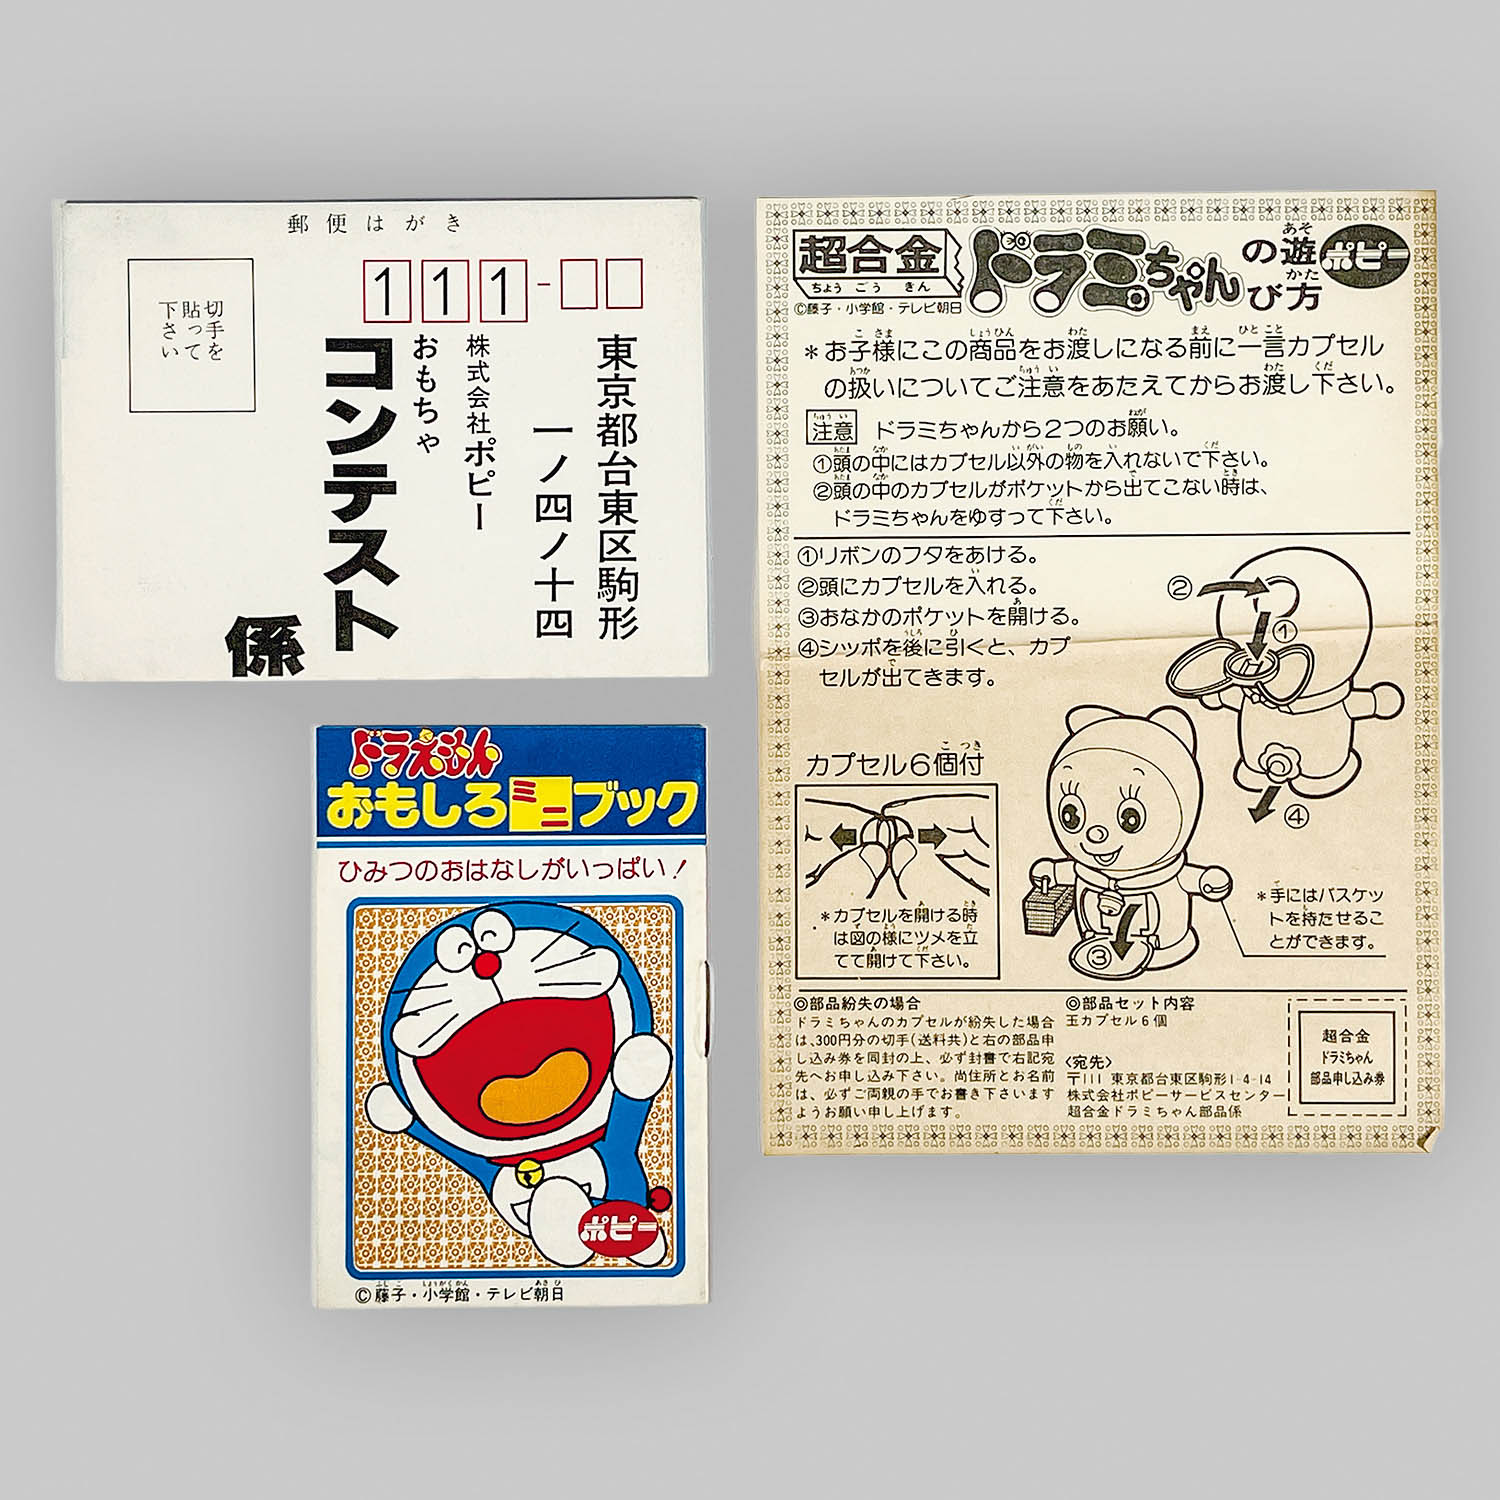 郵便はがき
切手を
貼って
下さい
111-
東京都台東区駒形
一ノ四ノ十四
株式会社ポピー
おもちゃ
コンテスト
係
ドラえもん
おもしろミニブック
ひみつのおはなしがいっぱい!
ポピー
ふじこ しょうがくかん あさひ
©藤子・小学館・テレビ朝日
超合金
ちょうごうきん
ドラミちゃん
の遊び方
あそ かた
ポピー
©藤子・小学館・テレビ朝日
こさま しょうひん わた まえ ひとこと
*お子様にこの商品をお渡しになる前に一言カプセル
あつか ちゅうい わた くだ
の扱いについてご注意をあたえてからお渡し下さい。
ちゅうい ねが
注意 ドラミちゃんから2つのお願い。
あたま なか いがい もの い くだ
①頭の中にはカプセル以外の物を入れないで下さい。
あたま なか で とき
②頭の中のカプセルがポケットから出てこない時は、
くだ
ドラミちゃんをゆすって下さい。
①リボンのフタをあける。
い
②頭にカプセルを入れる。
あ
③おなかのポケットを開ける。
うしろ ひ
④シッポを後に引くと、カプ
で
セルが出てきます。
②
①
④
③
こつき
カプセル6個付
あ とき
*カプセルを開ける時
ず よう た
は図の様にツメを立
あ くだ
てて開けて下さい。
て
*手にはバスケッ
も
トを持たせるこ
とができます。
◎部品紛失の場合
ドラミちゃんのカプセルが紛失した場合
は、300円分の切手(送料共)と右の部品申
し込み券を同封の上、必ず封書で右記宛
先へお申し込み下さい。尚住所とお名前
は、必ずご両親の手でお書き下さいます
ようお願い申し上げます。
◎部品セット内容
玉カプセル6個
〈宛先〉
〒111 東京都台東区駒形1-4-14
株式会社ポピーサービスセンター
超合金ドラミちゃん部品係
超合金
ドラミちゃん
部品申し込み券